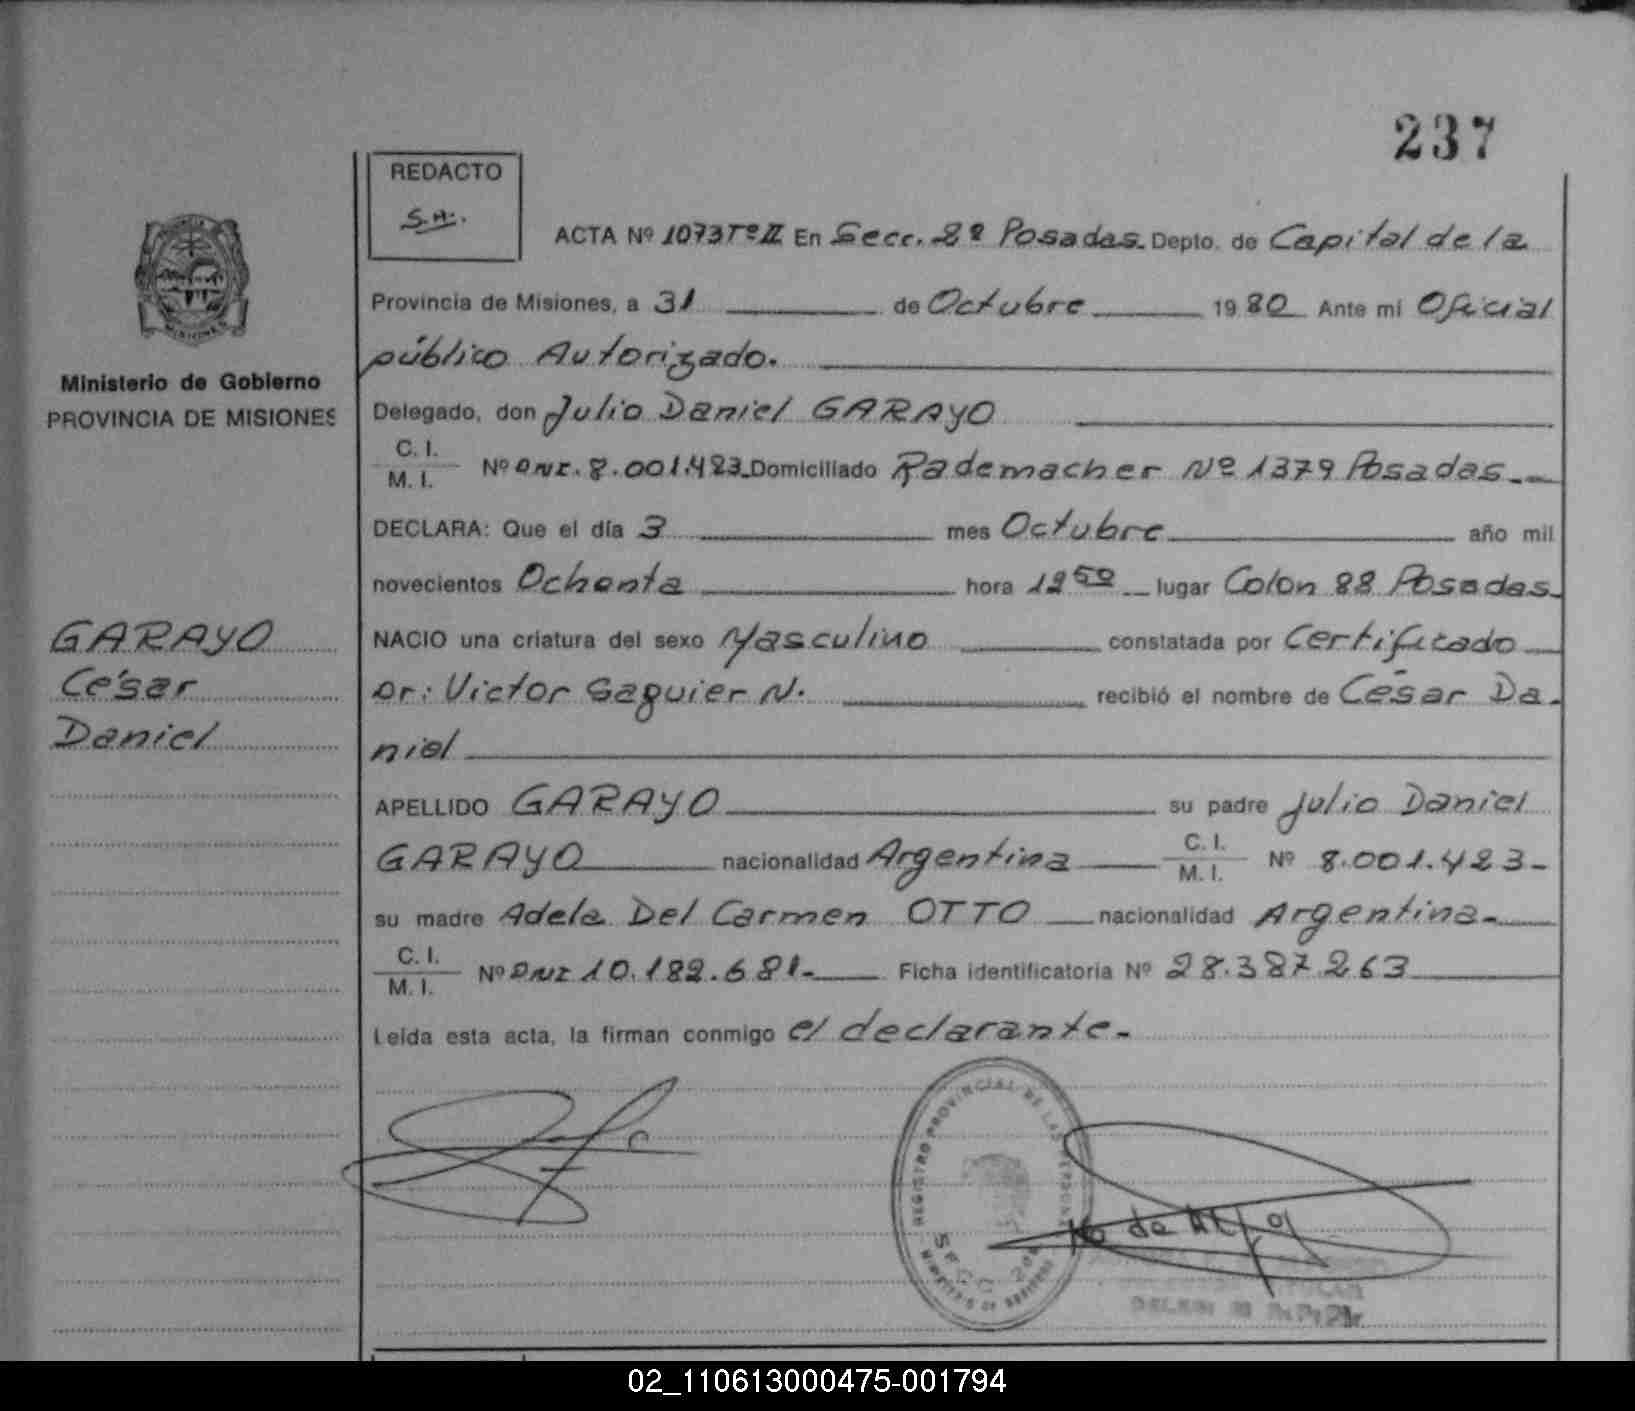 237
REDACTO
S.M.
ACTA Nº 1073 Tº II En Secc. 2º Posadas. Depto. de Capital de la
Provincia de Misiones, a 31 de Octubre 1980 Ante mi Oficial
público Autorizado.
Ministerio de Gobierno
PROVINCIA DE MISIONES
Delegado, don Julio Daniel GARAYO
C. I.
M. I. Nº DNI. 8.001.423 Domiciliado Rademacher Nº 1379 Posadas.
DECLARA: Que el día 3 mes Octubre año mil
novecientos Ochenta hora 12 50 lugar Colon 88 Posadas
GARAYO
César
Daniel
NACIO una criatura del sexo Masculino constatada por Certificado
Dr: Victor Saguier N. recibió el nombre de César Da-
niel
APELLIDO GARAYO su padre Julio Daniel
GARAYO nacionalidad Argentina C. I. M. I. Nº 8.001.423-
su madre Adela Del Carmen OTTO nacionalidad Argentina-
C. I.
M. I. Nº DNI 10.182.681.- Ficha identificatoria Nº 28.387.263
Leída esta acta, la firman conmigo el declarante.-
REGISTRO PROVINCIAL DE LAS PERSONAS
MINISTERIO DE GOBIERNO
02_110613000475-001794